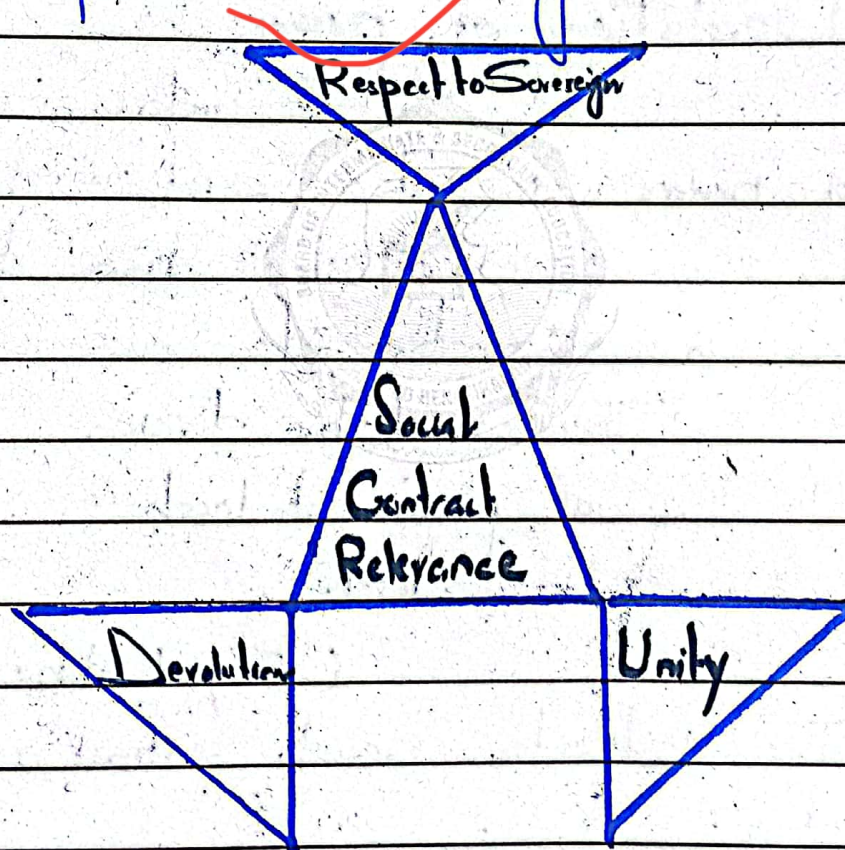 Respect to Sovereign
Social
Contract
Relevance
Devolution
Unity